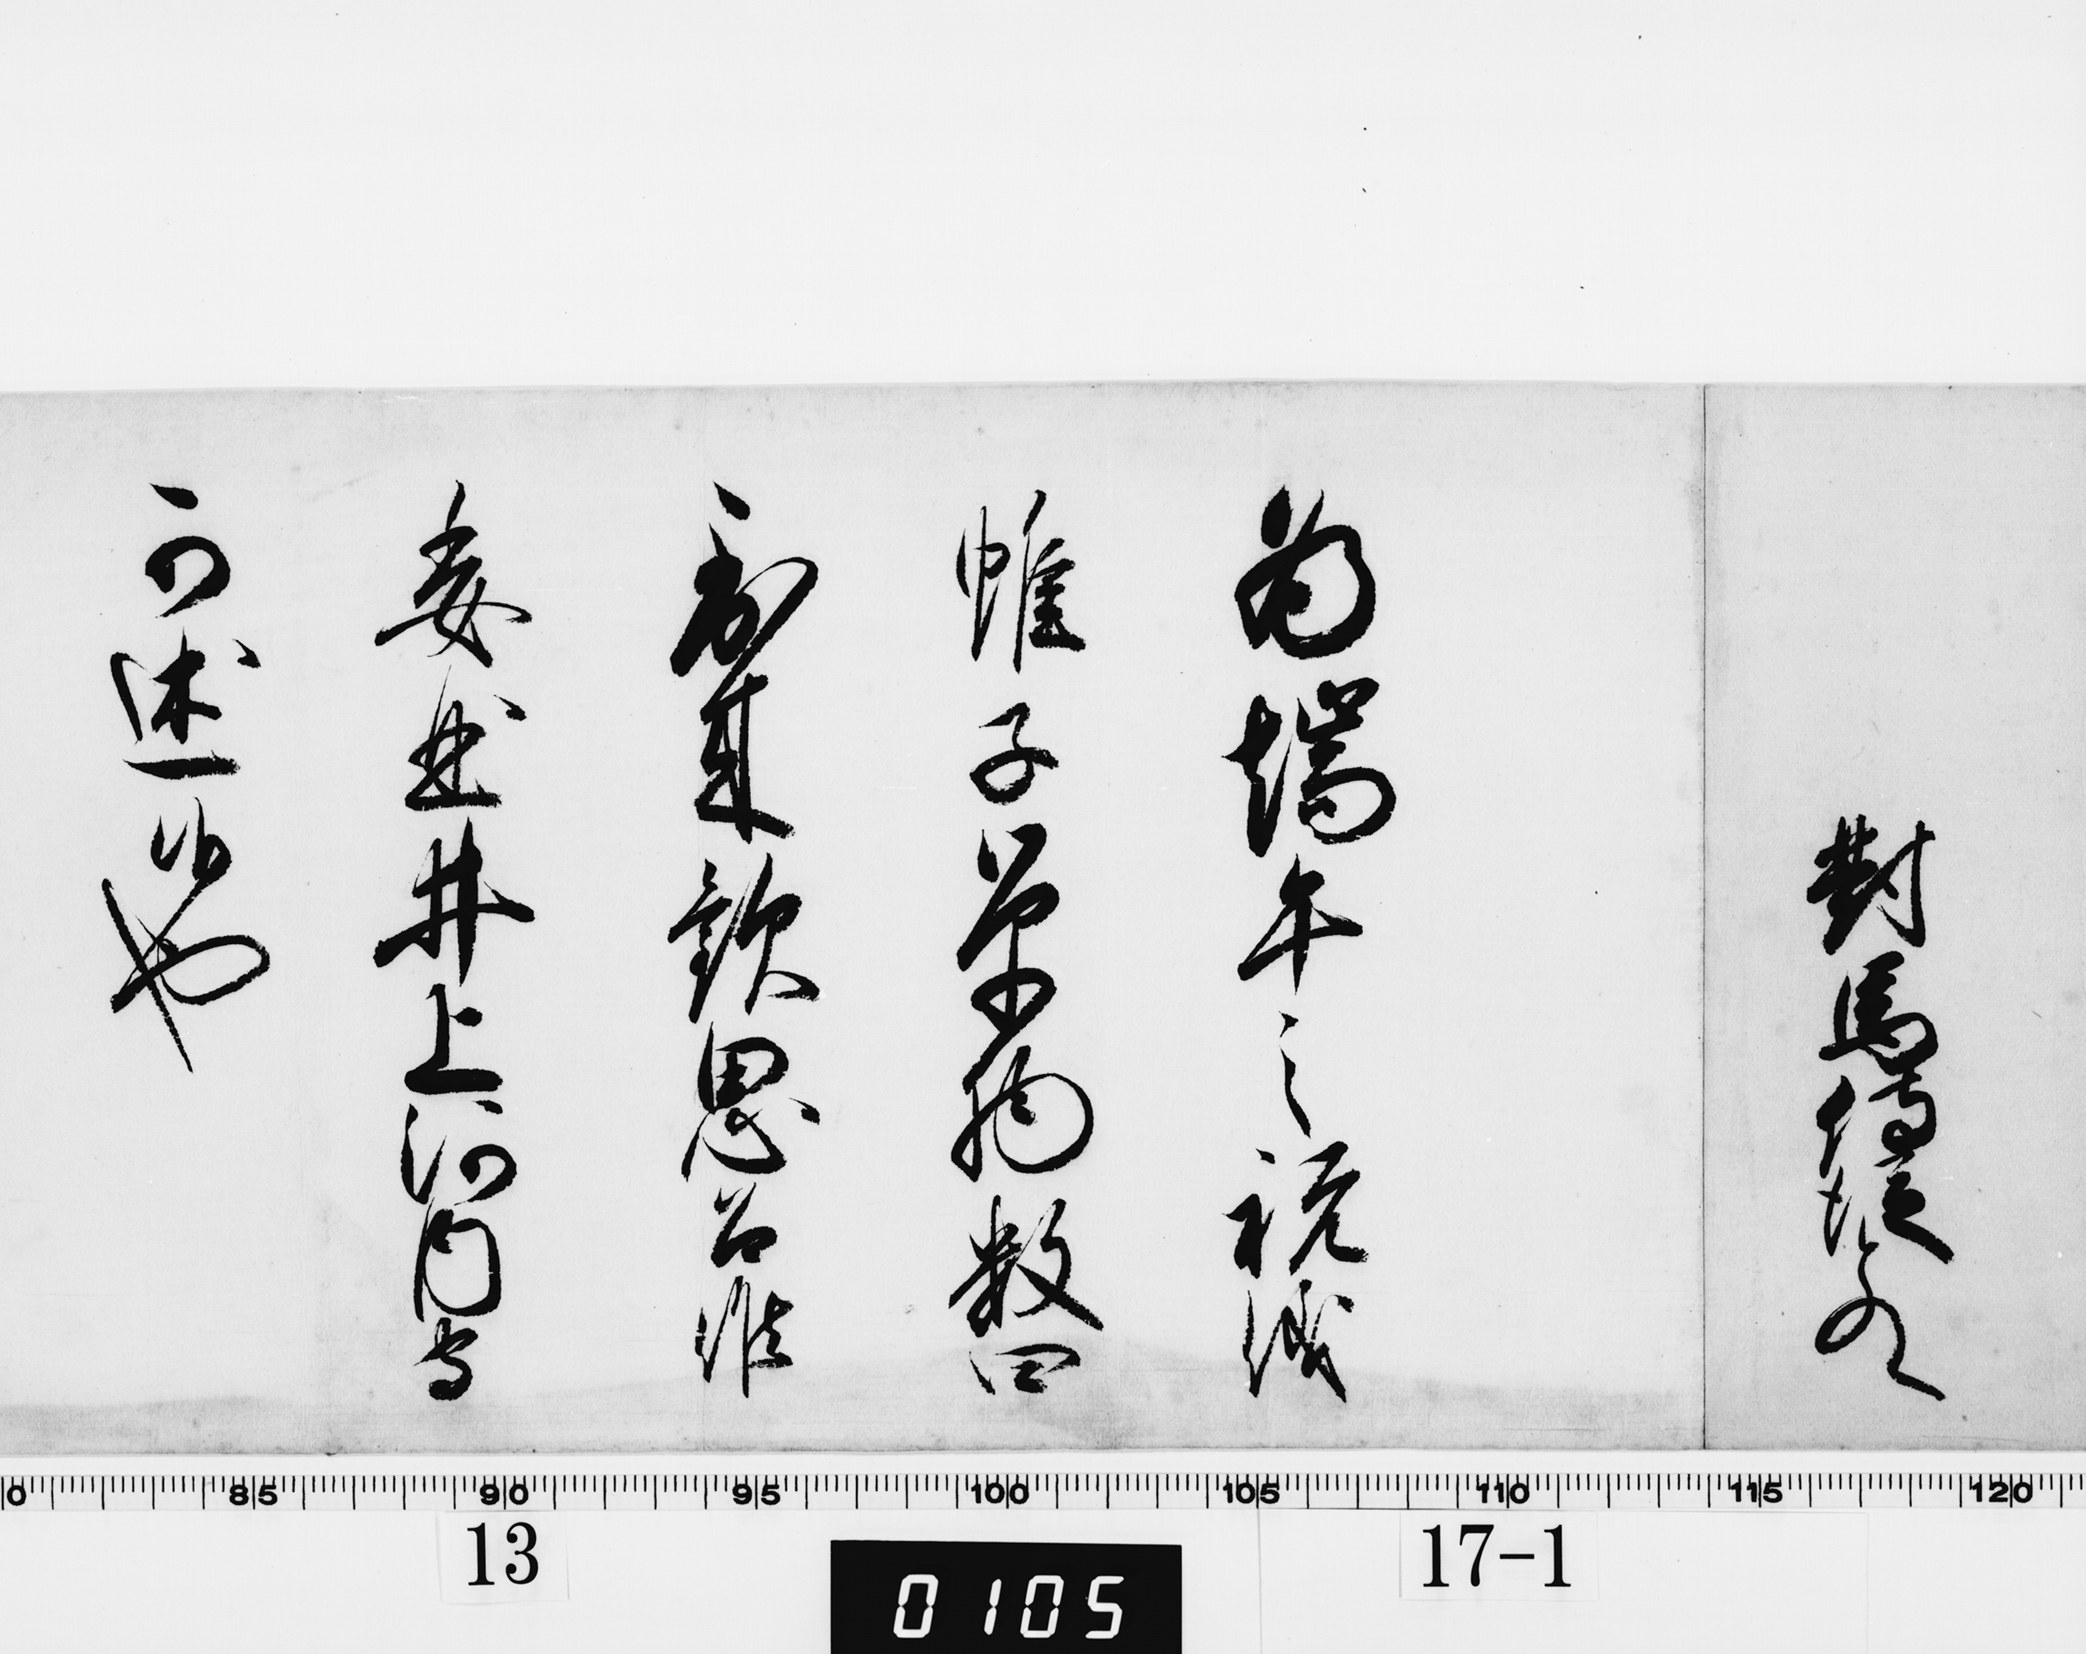 對馬侍従とのへ
為端午之祝儀
帷子単物数四
到来歓思召候
委曲井上河内守
可述候也
80 85 90 95 100 105 110 115 120
13
17-1
0105